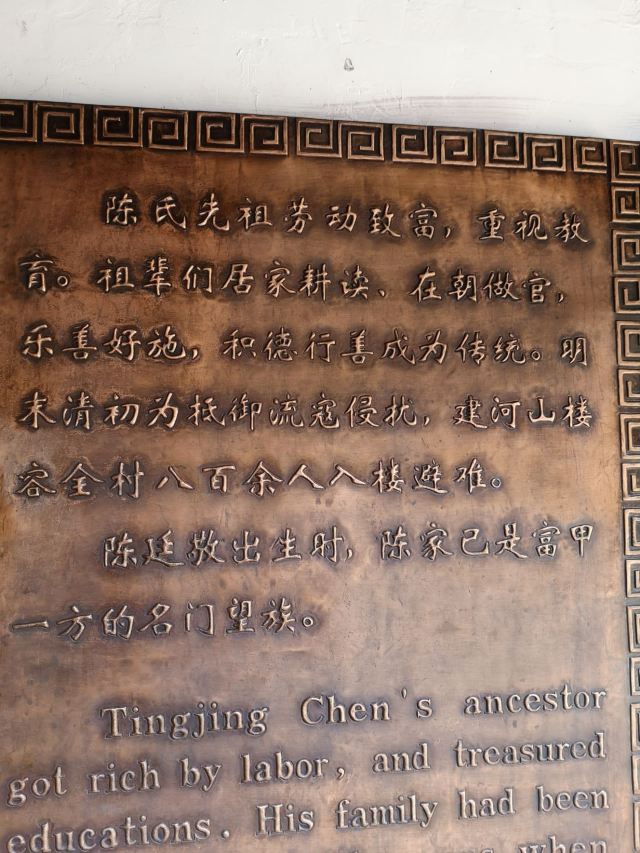 陈氏先祖劳动致富，重视教
育。祖辈们居家耕读、在朝做官，
乐善好施，积德行善成为传统。明
末清初为抵御流寇侵扰，建河山楼
容全村八百余人入楼避难。
陈廷敬出生时，陈家已是富甲
一方的名门望族。
Tingjing Chen's ancestor
got rich by labor, and treasured
educations. His family had been
when